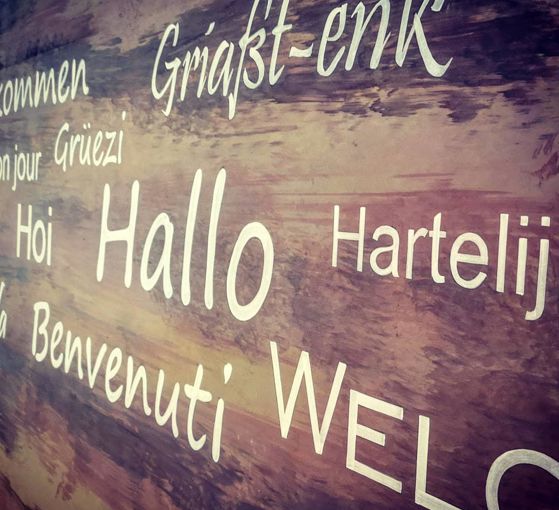 Griaßt-enk
kommen
on jour Grüezi
Hoi Hallo Hartelij
Benvenuti WELC